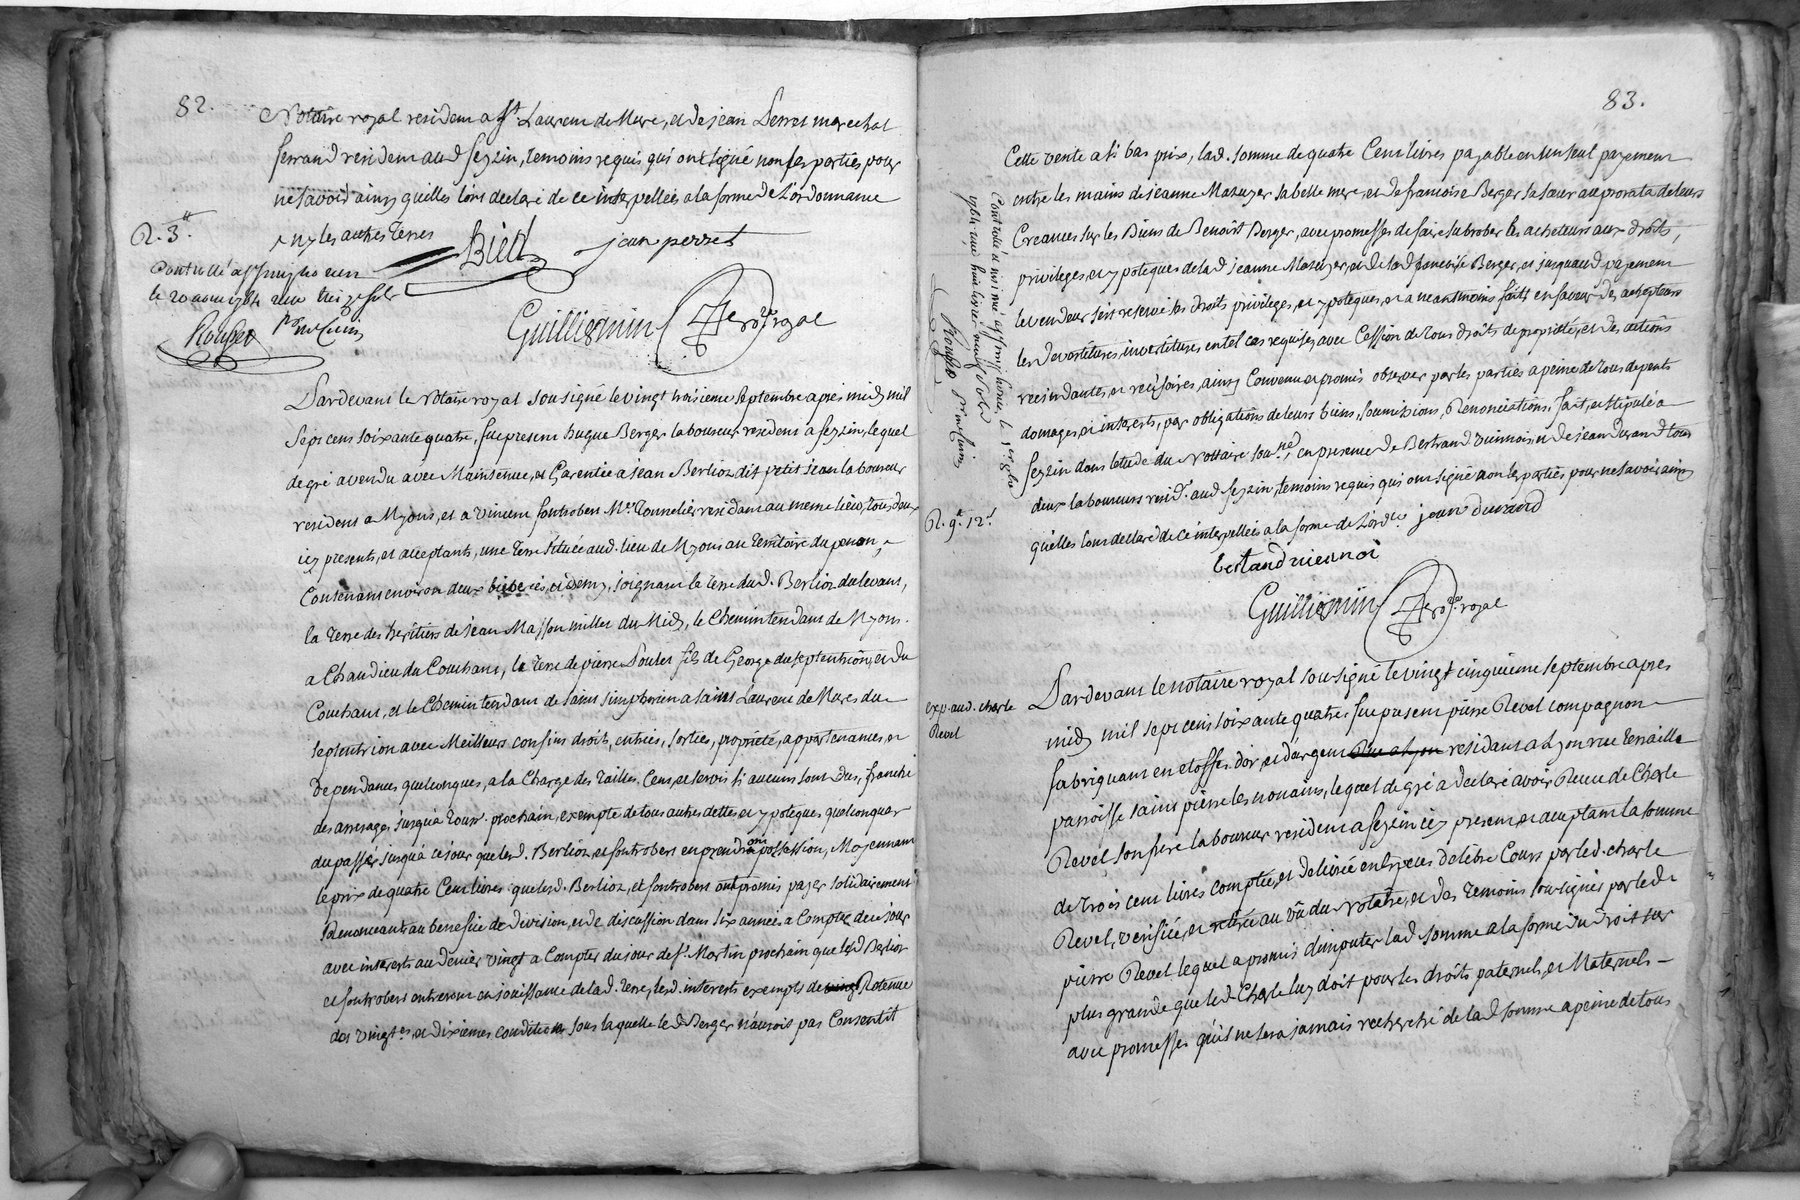 82.
Notaire royal resident a St Laurent de Mure, et de jean Perret marechal
ferrand resident aud feyzin, temoins requis qui ont signé non les parties pour
ne savoir ainsy quelles l'ont declaré de ce interpellées a la forme de L'ordonnance
R. 3.tt
les autres
Bied
jean perret
Controllé a St
le 20 1764 treize sols
Guilliermin
royal
Pardevant le Notaire royal Soussigné le vingt troisieme septembre apres midy mil
Sept cens soixante quatre, fut present hugue Berger laboureur resident a feyzin, lequel
de gré a vendu avec Maintenue, et Garentie a jean Berlioz dit petit jean laboureur
resident a Myons, et a vincent fontrobert Me Tonnelier resident au meme lieu, tous deux
icy presents, et acceptants, une Terre située aud. lieu de Myons au Territoire du
Contenant environ deux bicherées, et demy, joignant la terre dud. Berlioz du levant,
la Terre des heritiers de jean Masson miller du Midy, le Chemin tendant de Myons
a Chandieu du Couchant, la Terre de pierre Poulet fils de George du septentrion, et du
Couchant, et le Chemin tendant de saint simphorin a saint Laurent de Mures du
septentrion avec Meilleurs confins droits, entrées, sorties, proprieté, appartenances, et
dependances quelconques, a la Charge des Tailles, Cens, et servis si aucuns sont dus, franche
des arrerages jusqu'a jour prochain, exempte de tous autres dettes et ypoteques quelconques
du passé jusqu'a ce jour que lesd. Berlioz, et fontrobert en prendront possession, Moyennant
le prix de quatre Cent livres que lesd. Berlioz, et fontrobert ont promis payer solidairement
Renonceants au benefice de division, et de discussion dans six années a Compter de ce jour
avec interets au denier vingt a Compter du jour de St. Martin prochain que lesd Berlioz
et fontrobert entreront en jouissance de lad. Terre, lesd. interets exempts de Retenue
des vingtes. et dixiemes condition sous laquelle led Berger n'auroit pas Consentit
83.
Cette vente a si bas prix, lad. somme de quatre Cent livres payable en un seul payement
entre les mains de jeanne Mazuyer sa belle mere, et de francoise Berger sa sœur au prorata de leurs
Creances sur les Biens de Benoist Berger, avec promesses de faire subroger les acheteurs aux droits,
privileges, et ypoteques de lad jeanne Mazuyer, et de lad francoise Berger, et jusqu'aud payement
le vendeur s'est reservé les droits privileges, et ypoteques, et a neantmoins fait, en faveur des acheteurs
les Devestitures, investitures en tel cas requises avec Cession de tous droits de proprieté, et des actions
rescindantes, et rescisoires, ainsy Convenu, et promis observer par les parties a peine de tous depents
domages, et interets, par obligations de leurs biens, soumissions, Renonciations, fait, et stipulé a
feyzin dans l'etude du Nottaire sousne, en presence de Bertrand viennois et de jean durand tous
deux laboureurs resid.t aud feyzin, temoins requis qui ont signé non les parties pour ne savoir ainsy
quelles l'ont declaré de ce interpellées a la forme de L'ordce jean durand
bertand viennoi
Guilliermin
royal
Controllé a St
1764
R. 9.tt 12.s
exp. aud. charle
Revel
Pardevant le notaire royal soussigné le vingt cinquieme septembre apres
midy mil sept cens soixante quatre fut present pierre Revel compagnon
fabriquant en etoffes d'or, et d'argent residant a Lyon rue Tenaille
parroisse saint pierre les nonains, lequel de gré a declaré avoir Receu de Charle
Revel son frere laboureur resident a feyzin icy present, et acceptant la somme
de trois cent livres comptée, et delivrée en Especes d'elebre Cours par led. charle
Revel, verifiée, et retirée au vû du Notaire, et des Temoins soussignés par led.
pierre Revel lequel a promis d'imputer lad somme a la forme du Droit sur
plus grande que led Charle luy doit pour les droits paternels, et Maternels
avec promesses qu'il ne sera jamais recherché de lad somme a peine de tous